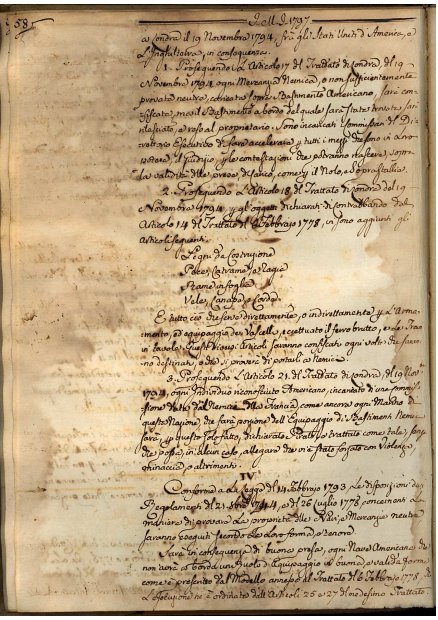 58
1797
a Londra il 19 Novembre 1794, frà gli Stati Uniti d'America, e
l'Inghilterra, in conseguenza.
1. Proseguendo l'Articolo 17 del Trattato di Londra, del 19
Novembre 1794 ogni Mercanzia Nemica, o non sufficientemente
provata neutra, caricata sopra Bastimento Americano, sarà con=
fiscata, ma il Bastimento a bordo del quale sarà stata trovata sarà
rilasciato, e reso al proprietario. Sono incaricati i Commissarj del Di=
rettorio Esecutivo di fare accelerare, tutti i mezzi che sono in loro
potere, il giudizio, le contestazioni che potranno nascere, sopra
la validità delle prede, di carico, come il Nolo, e
2. Proseguendo l'Articolo 18 del Trattato di Londra del 19
Novembre 1794, gli oggetti dichiarati di contrabbando dall'
Articolo 24 del Trattato de' 6 Febbrajo 1778, sono aggiunti gli
articoli seguenti.
Legni da Costruzione
Pece, Catrame, e Ragie
Rame in foglie
Vele, Canapa, e Corde
E tutto ciò che serve direttamente, o indirettamente l'Arma=
mento, ed equipaggio dei Vascelli, eccettuato il ferro brutto, e
in tavole. Questi Articoli saranno confiscati ogni volta che saran=
no destinati, o che si proverà di portarli a Nemici.
3. Proseguendo l'Articolo 21 del Trattato di Londra, del 19 Nov.
1794, ogni Individuo riconosciuto Americano, incaricato di una
data dai Nemici della Francia, come ancora ogni Marino di
questa Nazione, che farà porzione dell'Equipaggio di Bastimenti Nemici
sarà, questo solo fatto, dichiarato Pirata, e trattato come tale, senza
che possa, in alcun caso, allegare che vi è stato forzato con Violenza,
minaccia, o altrimenti.
IV.
Conforme a la Legge del 14 Febbrajo 1793, le disposizioni dei
Regolamenti del 21 1744, e del 26 Luglio 1778 concernenti la
maniera di provare la proprietà delle Navi, e Mercanzie neutre
saranno eseguiti secondo la loro forma, e tenore.
Sarà in conseguenza di buona presa, ogni Nave Americana che
non avrà a bordo un Ruolo d'Equipaggio in buona, e valida forma
come è prescritto dal Modello annesso al Trattato del 6 Febbrajo 1778,
l'esecuzione ne è ordinata dall'Articoli 25 e 27 del medesimo Trattato.